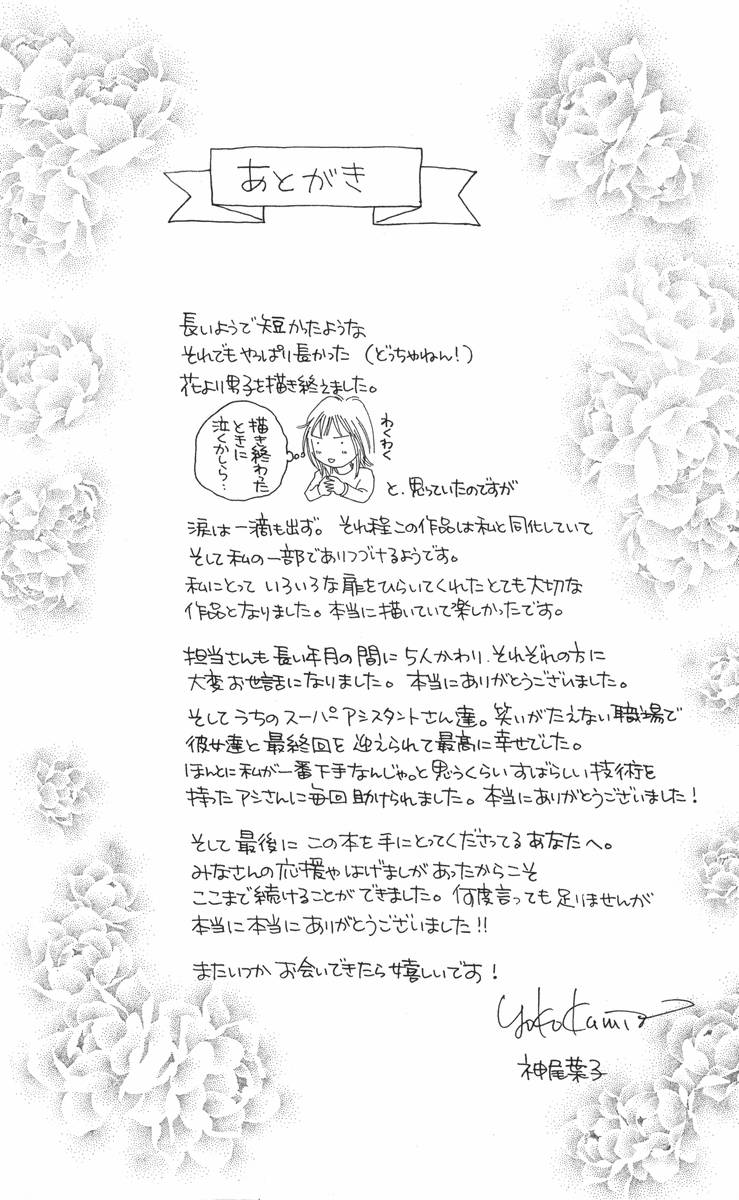 あとがき
長いようで短かったような
それでもやっぱり長かった (どっちゃねん!)
花より男子を描き終えました。
描き終わった
ときに
泣くかしら…
わくわく
と、思っていたのですが
涙は一滴も出ず。それ程この作品は私と同化していて
そして私の一部でありつづけるようです。
私にとって いろいろな扉をひらいてくれたとても大切な
作品となりました。本当に描いていて楽しかったです。
担当さんも長い年月の間に5人かわり、それぞれの方に
大変お世話になりました。本当にありがとうございました。
そしてうちのスーパーアシスタントさん達。笑いがたえない職場で
彼女達と最終回を迎えられて最高に幸せでした。
ほんとに私が一番下手なんじゃ。と思うくらいすばらしい技術を
持ったアシさんに毎回助けられました。本当にありがとうございました!
そして最後に この本を手にとってくださってるあなたへ。
みなさんの応援やはげましがあったからこそ
ここまで続けることができました。何度言っても足りませんが
本当に本当にありがとうございました!!
またいつか お会いできたら嬉しいです!
Yoko Kamio
神尾葉子